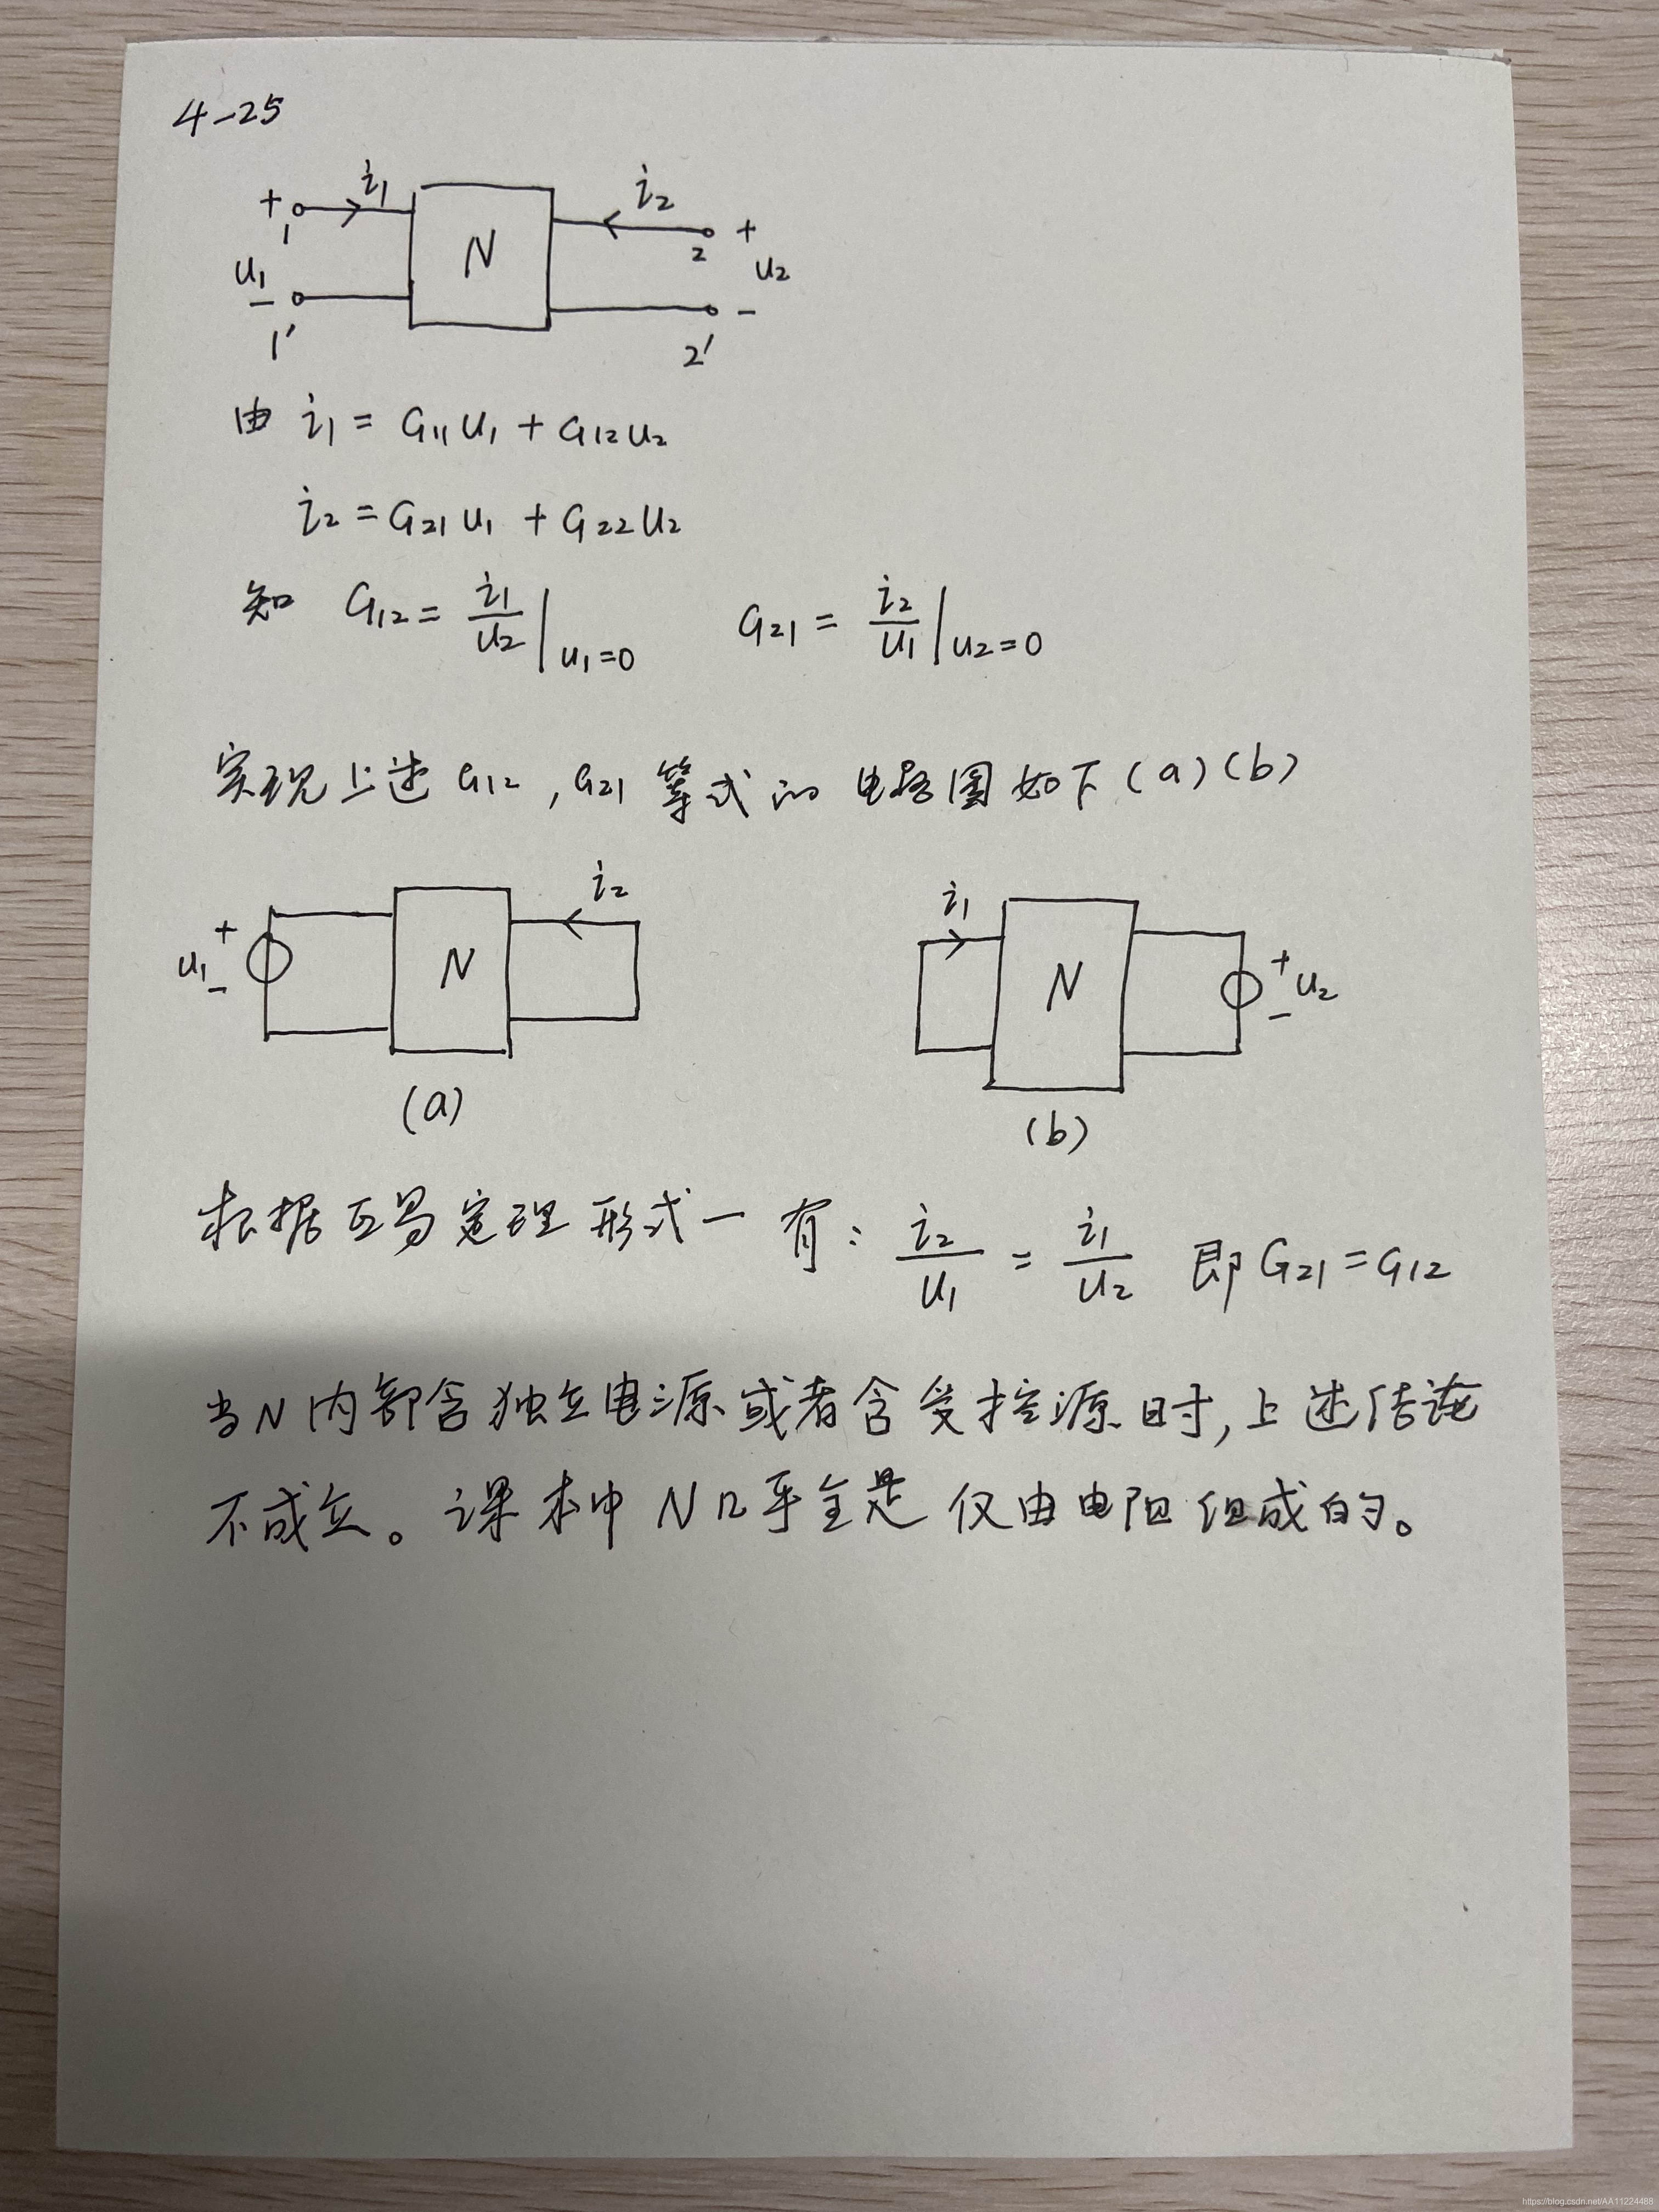 4-25
+ i₁ i₂ +
1 N 2
u₁ u₂
- -
1′ 2′
由 i₁ = G₁₁u₁ + G₁₂u₂
i₂ = G₂₁u₁ + G₂₂u₂
知 G₁₂ = i₁/u₂ |u₁=0 G₂₁ = i₂/u₁ |u₂=0
实现上述 G₁₂ , G₂₁ 等式的 电路图如下 (a) (b)
i₂ i₁
+ +
u₁ N N u₂
- -
(a) (b)
根据互易定理 形式一 有: i₂/u₁ = i₁/u₂ 即 G₂₁ = G₁₂
当N内部含独立电源或者含受控源时, 上述结论
不成立。课本中 N几乎全是 仅由电阻组成的。
https://blog.csdn.net/AA11224488